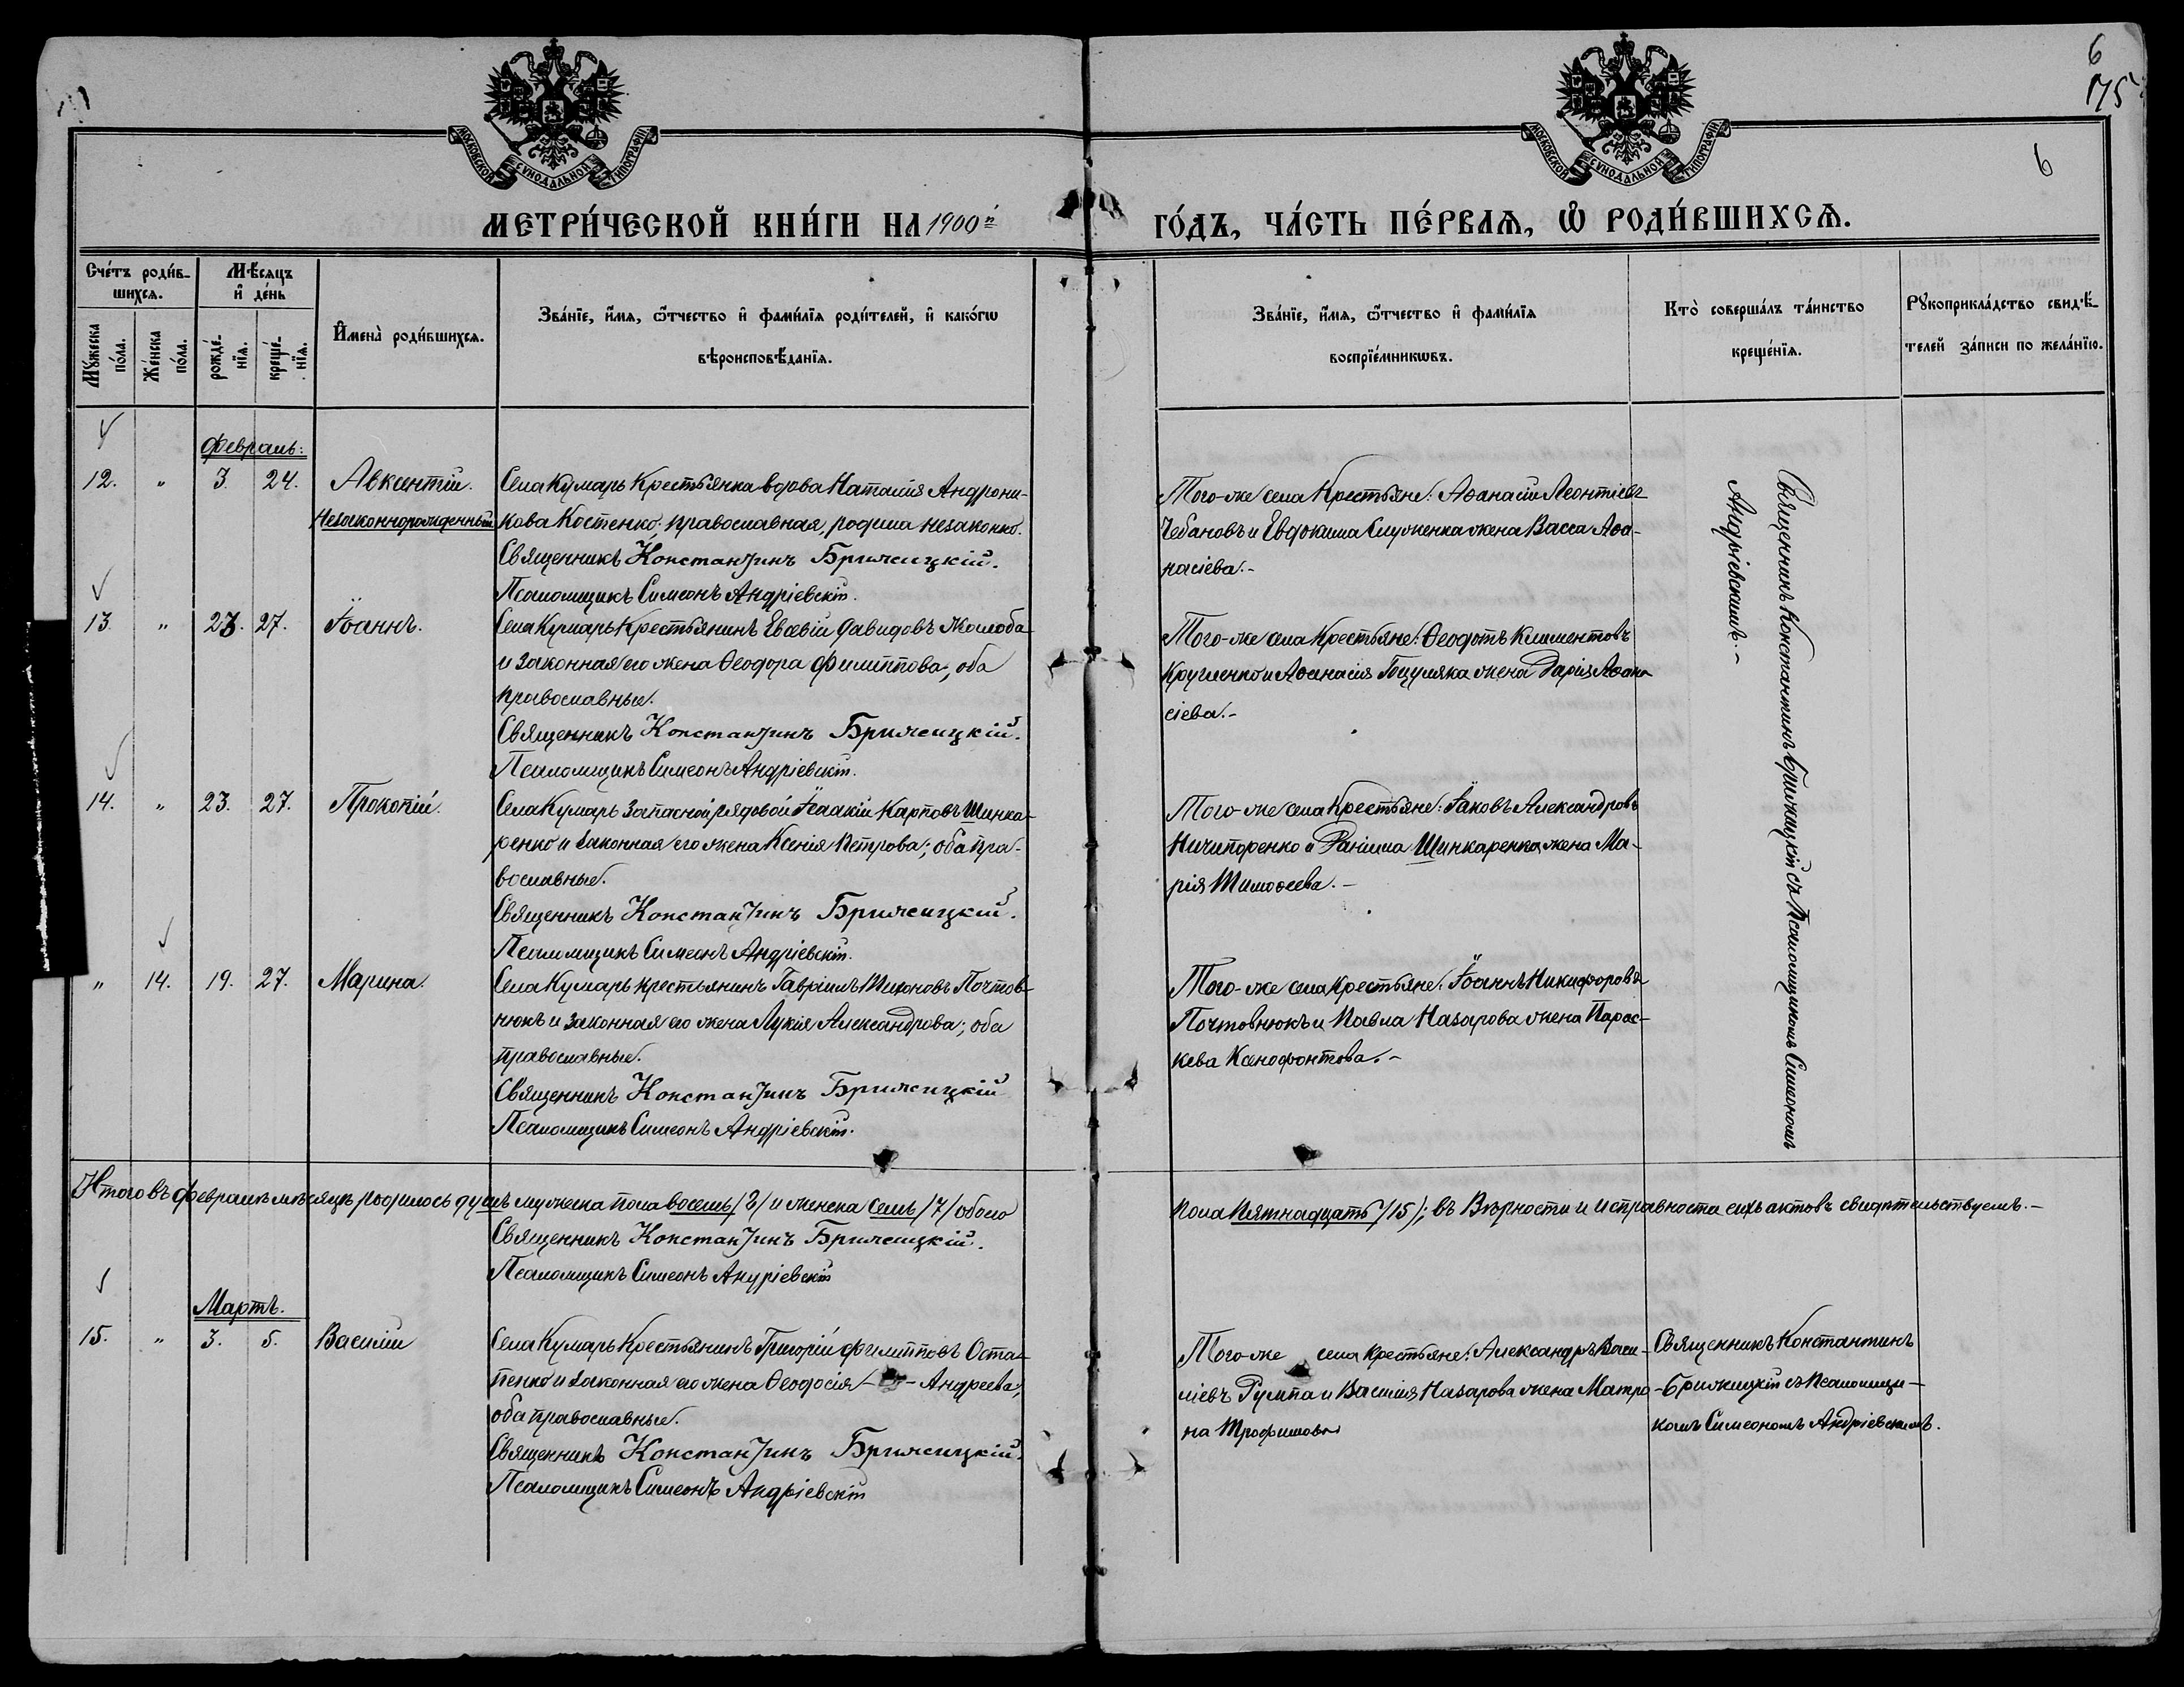 6
175
6
МОСКОВСКОЙ СУНОДАЛЬНОЙ ТИПОГРАФІИ
МОСКОВСКОЙ СУНОДАЛЬНОЙ ТИПОГРАФІИ
МЕТРИ́ЧЕСКОЙ КНИ́ГИ НА 1900й ГО́ДЪ, ЧА́СТЬ ПЕ́РВАѦ, Ѿ РОДИ́ВШИХСѦ.
Сче́тъ роди́в-
шихсѧ.
Мѣ́сяцъ
и҆ де́нь
Мꙋ́жеска
по́ла.
Же́нска
по́ла.
рожде́-
нїѧ.
креще́-
нїѧ.
И҆мена̀ роди́вшихсѧ.
Зва́нїе, и҆́мѧ, ѻ҆́тчество и҆ фами́лїѧ роди́телей, и҆ како́гѡ
вѣроисповѣ́данїѧ.
Зва́нїе, и҆́мѧ, ѻ҆́тчество и҆ фами́лїѧ
воспрїе́мникѡвъ.
Кто̀ соверша́лъ та́инство
креще́нїѧ.
Рꙋкоприкла́дство свидѣ́-
телей за́писи по жела́нїю.
Февраль:
12. " 3. 24. Авксентій.
Незаконнорожденный
Села Кумарь Крестьянка вдова Наталія Андрони-
кова Костенко, православная, родила незаконно.
Священникъ Константинъ Брижицкій.
Псаломщикъ Симеонъ Андріевскій.
Того-же села Крестьяне: Аѳанасій Леонтіевъ
Чебановъ и Евдокима Служенка жена Васса Аѳа-
насіева.-
Священникъ Константинъ Брижицкій съ Псаломщикомъ Симеономъ
Андріевскимъ.-
13. " 23. 27. Іоаннъ.
Села Кумарь Крестьянинъ Евсевій Давидовъ Жолоба
и законная его жена Ѳеодора Филиппова, оба
православные.
Священникъ Константинъ Брижицкій.
Псаломщикъ Симеонъ Андріевскій.
Того-же села Крестьяне: Ѳеодотъ Климентовъ
Кругленко и Аѳанасія Гоцуляка жена Дарія Аѳана
сіева.-
14. " 23. 27. Прокопій.
Села Кумарь Запасной рядовой Исаакій Карповъ Шинка-
ренко и законная его жена Ксенія Петрова; оба пра-
вославные.
Священникъ Константинъ Брижицкій.
Псаломщикъ Симеонъ Андріевскій.
Того-же села Крестьяне: Іаковъ Александровъ
Ничипоренко и Даніила Шинкаренка жена Ма-
рія Тимоѳеева.-
" 14. 19. 27. Марина.
Села Кумарь крестьянинъ Гавріилъ Тихоновъ Почтов-
нюкъ и законная его жена Лукія Александрова; оба
православные.
Священникъ Константинъ Брижицкій
Псаломщикъ Симеонъ Андріевскій.
Того-же села Крестьяне: Іоаннъ Никифоровъ
Почтовнюкъ и Павла Назарова жена Парас-
кева Ксенофонтова.-
Итого въ февралѣ мѣсяцѣ родилось душъ мужеска пола восемь /8/ и женска семь /7/ обоего
пола Пятнадцать /15/; въ Вѣрности и исправности сихъ актовъ свидѣтельствуемъ.-
Священникъ Константинъ Брижицкій.
Псаломщикъ Симеонъ Андріевскій
Мартъ.
15. " 3. 5. Василій
Села Кумарь Крестьянинъ Григорій Филипповъ Оста-
пенко и законная его жена Ѳеодосія - Андреева,
оба православные.
Священникъ Константинъ Брижицкій.
Псаломщикъ Симеонъ Андріевскій
Того-же села крестьяне: Александръ Васи-
ліевъ Румпа и Василія Назарова жена Матро-
на Трофимова
Священникъ Константинъ
Брижицкій съ Псаломщи-
комъ Симеономъ Андріевскимъ.